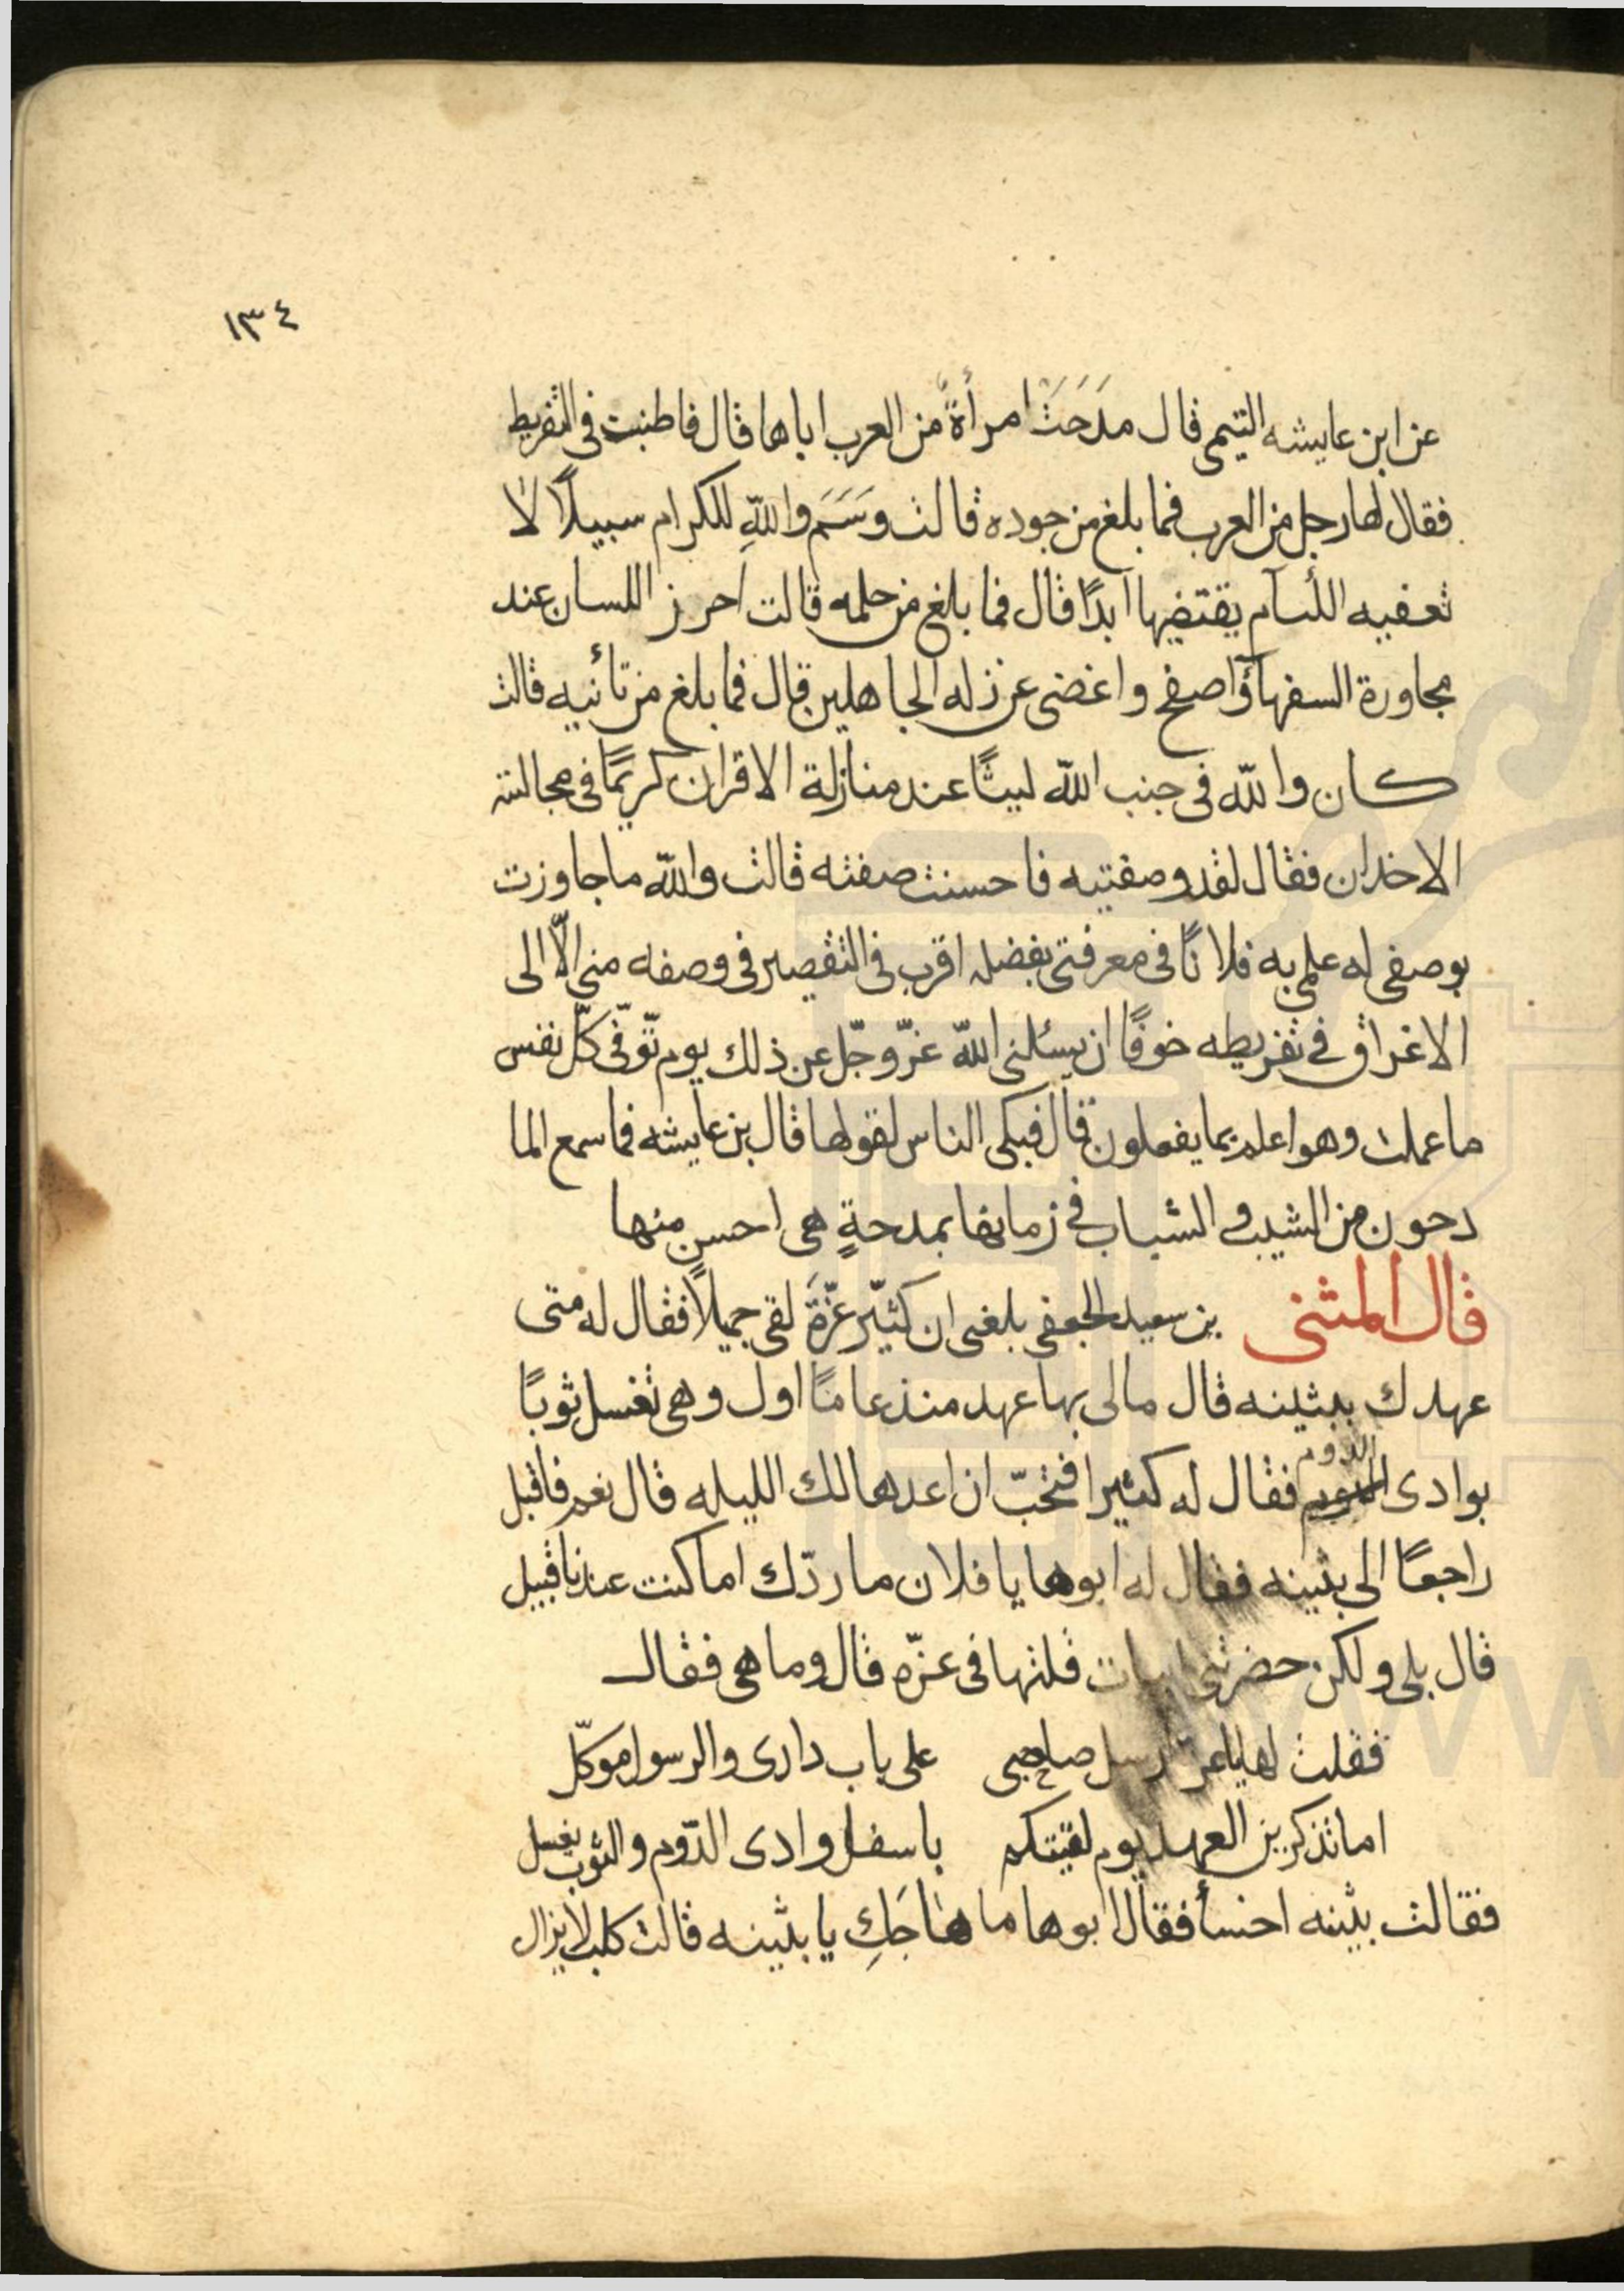 ١٣٤
عن ابن عايشه التيمى قال مدَحَتْ امرأةٌ من العرب اباها قال فاطنبت فى التقريط
فقال لها رجل من العرب فما بلغ من جوده قالت وسَمَ واللّهِ للكرام سبيلًا لا
تعفيه اللئام يقتضيها ابدًا قال فما بلغ من حلمه قالت احرز اللسان عند
مجاورة السفهآؤ اصفح واغضى عن زله الجاهلين قال فما بلغ من تأنيه قالت
كان واللّه فى جنب اللّه ليثًا عند منازلة الاقران كريمًا فى مجالسته
الاخدان فقال لقد وصفتيه فاحسنت صفته قالت واللّه ما جاوزت
بوصفى له علمى به فلانًا فى معرفتى بفضله اقرب فى التقصير فى وصفه منى الّا الى
الاغراق فى تقريظه خوفًا ان يسئلنى اللّه عزّ وجّل عن ذلك يوم توّفى كلّ نفس
ما عملت وهو اعلم بما يفعلون قال فبكى الناس لقولها قال بن عايشه فما سمع الما
دحون من الشيب والشباب فى زمانها بمدحةٍ هى احسن منها
قال المثنى بن سعيد الجعفى بلغنى ان كثيّر عزّةَ لقى جميلًا فقال له متى
عهدك ببثينه قال مالى بها عهد منذ عامًا اول وهى تغسل ثوبًا
بوادى الدوم فقال له كثير افتحبّ ان اعدها لك الليله قال نعم فاقبل
راجعًا الى بثينه فقال له ابوها يا فلان ما ردّك اما كنت عندنا قبيل
قال بلى ولكن حضرتنى ابيات قلتها فى عزّه قال وما هى فقال
فقلت لها يا عزّ ارسل صاحبى على باب دارى والرسول موكّل
اما تذكرين العهد يوم لقيتكم باسفل وادى الدّوم والثوب يغسل
فقالت بثينه اخسأ فقال ابوها ما هاجَكِ يا بثينه قالت كلب لا يزال